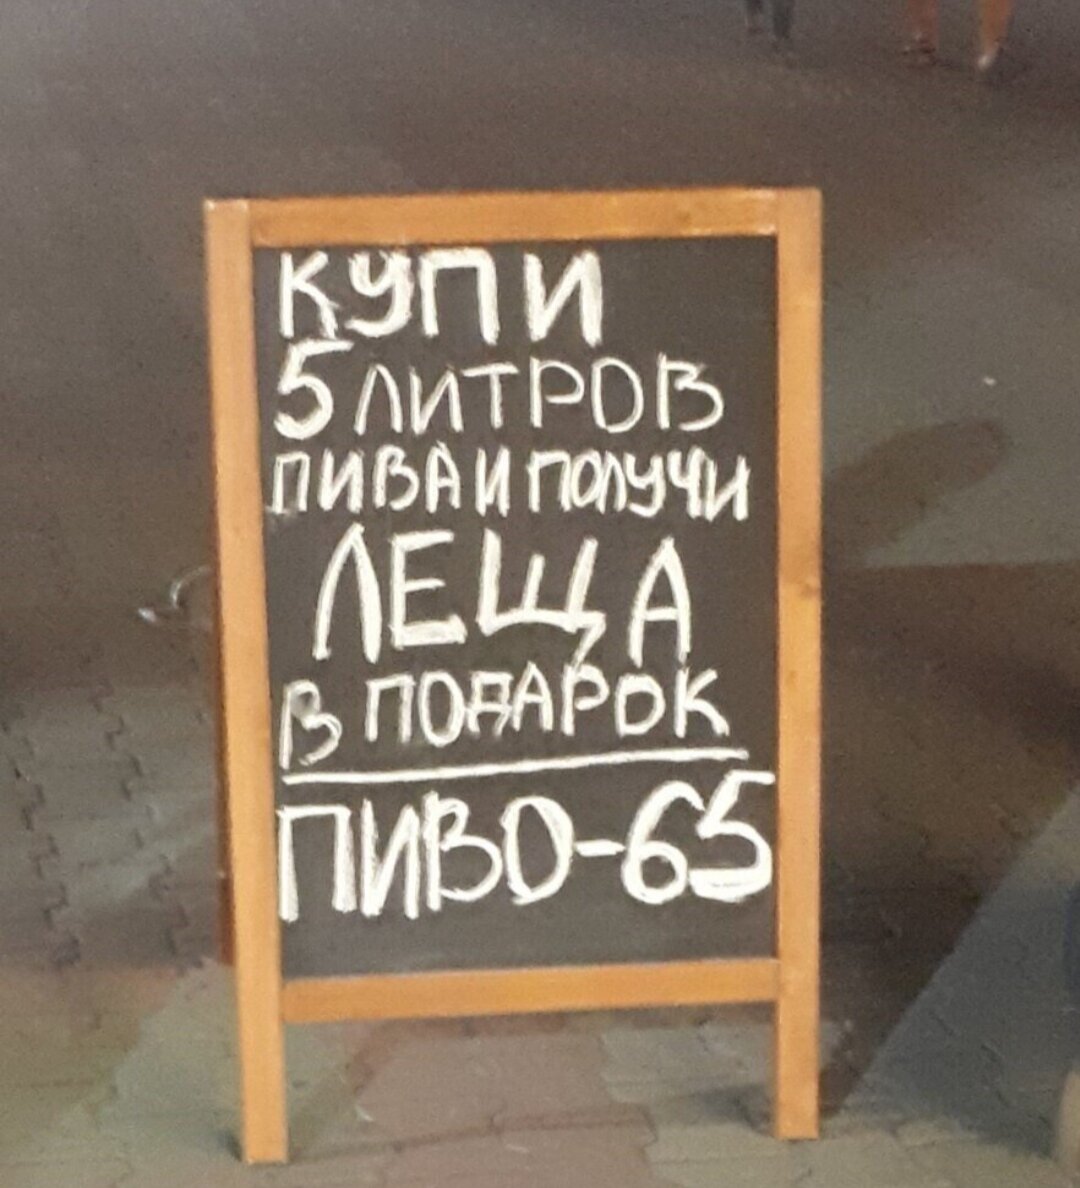 КУПИ
5 ЛИТРОВ
ПИВА И ПОЛУЧИ
ЛЕЩА
В ПОДАРОК
ПИВО-65